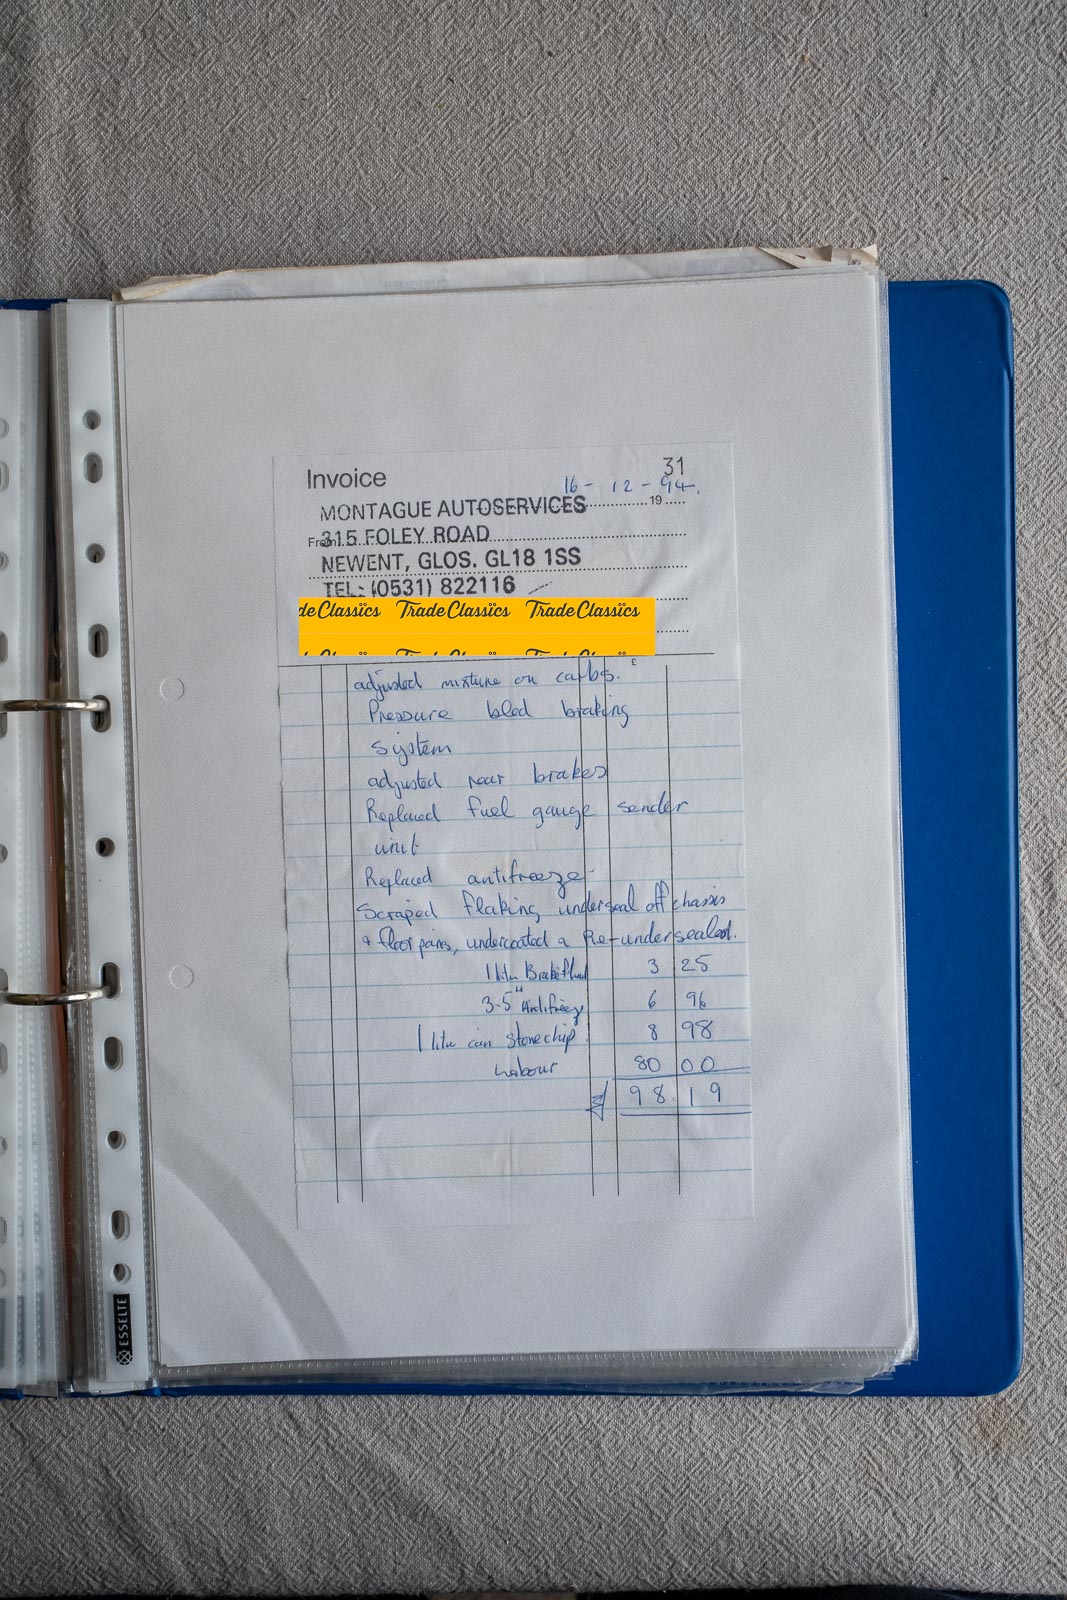 Invoice
31
16 - 12 - 94.
19
MONTAGUE AUTOSERVICES
From 315 FOLEY ROAD
NEWENT, GLOS. GL18 1SS
TEL: (0531) 822116
deClassics TradeClassics TradeClassics
£
adjusted mixture on carbs.
Pressure bled braking
system
adjusted rear brakes
Replaced fuel gauge sender
unit
Replaced antifreeze
Scraped flaking underseal off chassis
& floor pans, undercoated & Re-undersealed.
1 litre Brake fluid 3 25
3.5 Lt Antifreeze 6 96
1 litre can stonechip 8 98
Labour 80 00
98.19
ESSELTE